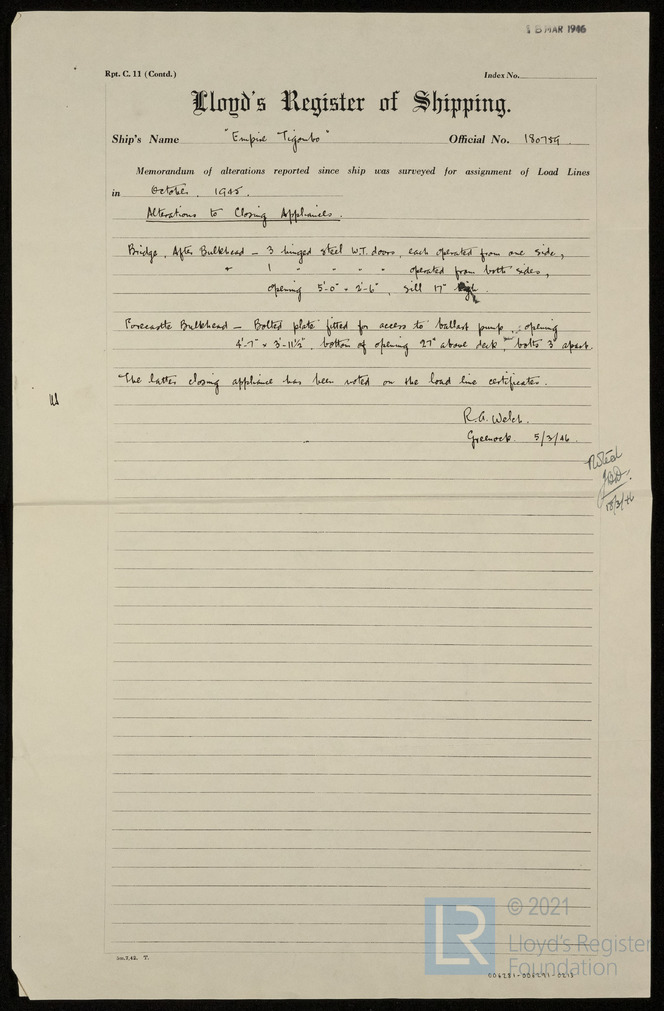 18 MAR 1946
Rpt. C. 11 (Contd.)
Index No.
Lloyd's Register of Shipping.
Ship's Name "Empire Tigombo" Official No. 180789.
Memorandum of alterations reported since ship was surveyed for assignment of Load Lines
in October, 1945.
Alterations to Closing Appliances.
Bridge, After Bulkhead – 3 hinged steel W.T. doors, each operated from one side,
" 1 " " " " operated from both sides,
opening 5'-0" × 2'-6", sill 17" high.
Forecastle Bulkhead – Bolted plate fitted for access to ballast pump, opening
4'-7" × 3'-11½", bottom of opening 27" above deck, bolts 3" apart.
The latter closing appliance has been noted on the load line certificates.
R.A. Welch.
Greenock. 5/3/46.
Noted
18/3/46
5m.7,42. T.
LR
© 2021
Lloyd's Register
Foundation
006281-006291-0213